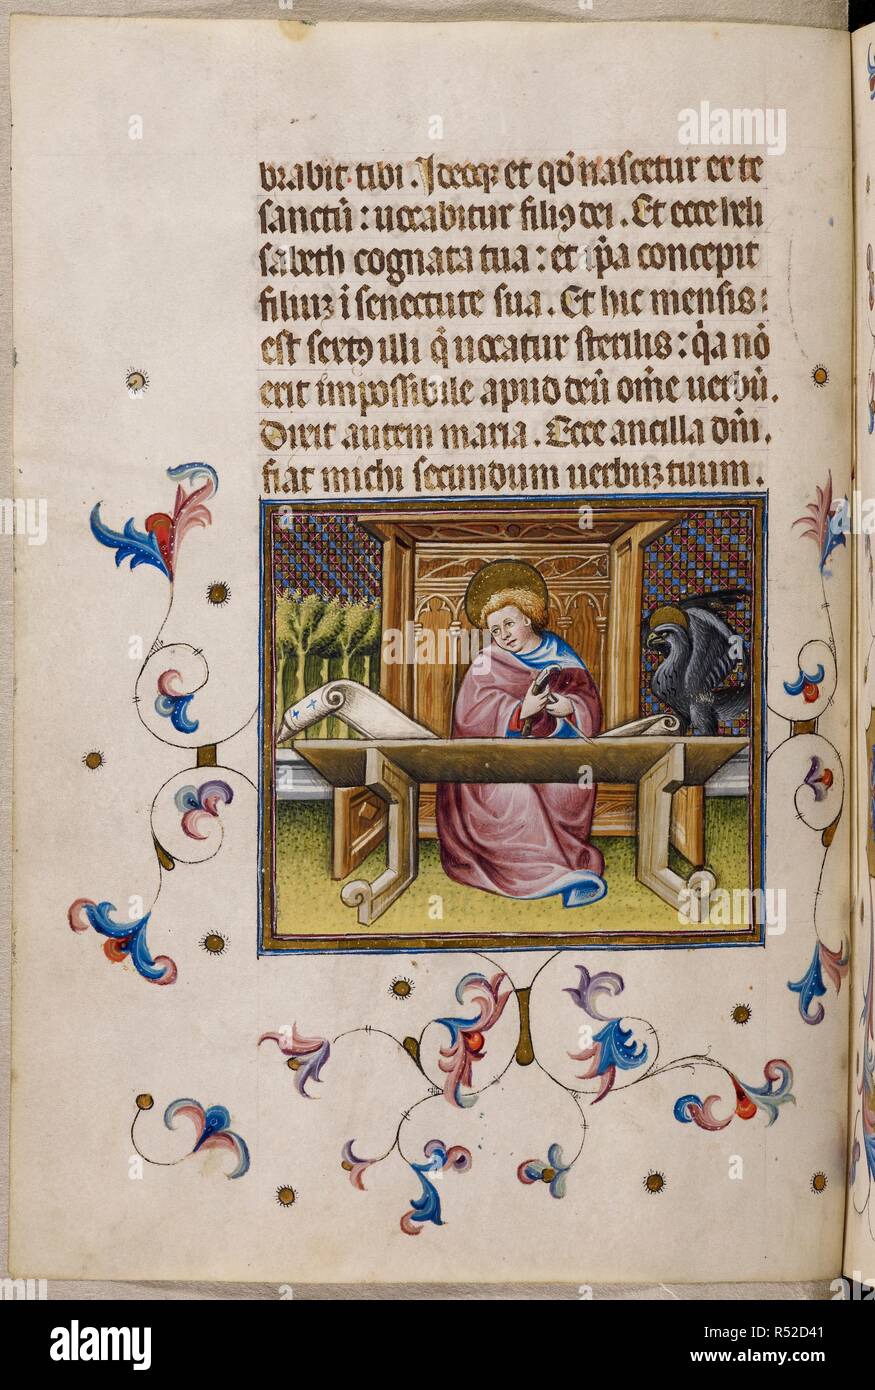 brabit tibi. Ideoq; et qd̄ nascetur ex te
sanctū: uocabitur filiꝰ dei. Et ecce heli
sabeth cognata tua: et ip̄a concepit
filiuꝫ ī senectute sua. Et hic mensis:
est sextꝰ illi q̄ uocatur sterilis: q̄a nō
erit impossibile apud deū om̄e uerbū.
Dixit autem maria. Ecce ancilla dn̄i,
fiat michi secundum uerbuꝫ tuum.
a
alamy
alamy
Image ID: R52D41
www.alamy.com